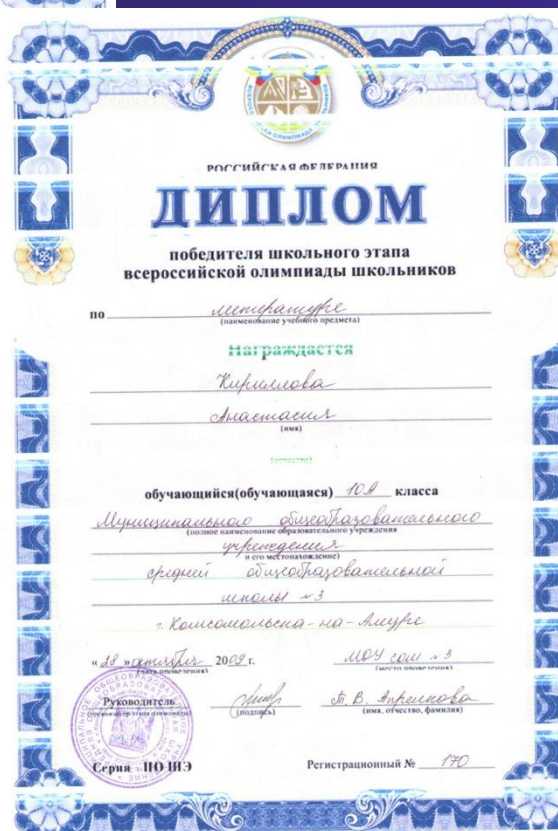 РОССИЙСКАЯ ФЕДЕРАЦИЯ
ДИПЛОМ
победителя школьного этапа
всероссийской олимпиады школьников
по литературе
(наименование учебного предмета)
Награждается
Кириллова
Анастасия
(имя)
(отчество)
обучающийся(обучающаяся) 10А класса
Муниципального общеобразовательного
(полное наименование образовательного учреждения
учреждения
и его местонахождение)
средней общеобразовательной
школы №3
г. Комсомольска-на-Амуре
«28» октября 2009 г. МОУ сош №3
(дата проведения) (место проведения)
Руководитель Т. В. Апрелкова
(организатор этапа олимпиады) (подпись) (имя, отчество, фамилия)
Серия ПО ШЭ Регистрационный № 170